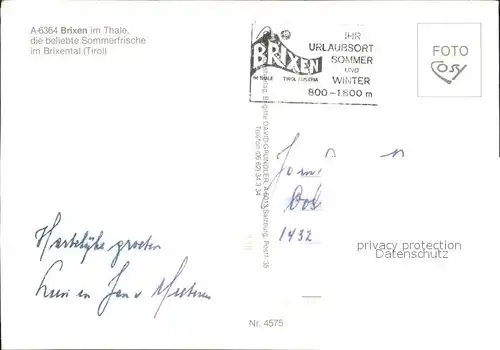 A-6364 Brixen im Thale,
die beliebte Sommerfrische
im Brixental (Tirol)
BRIXEN
IM THALE TIROL AUSTRIA
IHR
URLAUBSORT
SOMMER
UND
WINTER
800-1.800 m
FOTO
Cosy
Brigitte DAVID-GRÜNDLER, A-5013 Salzburg, Postf. 36
Telefon (06 62) 34 3 34
1432
Hartelijke groeten
en Jan v
privacy protection
Datenschutz
Nr. 4575